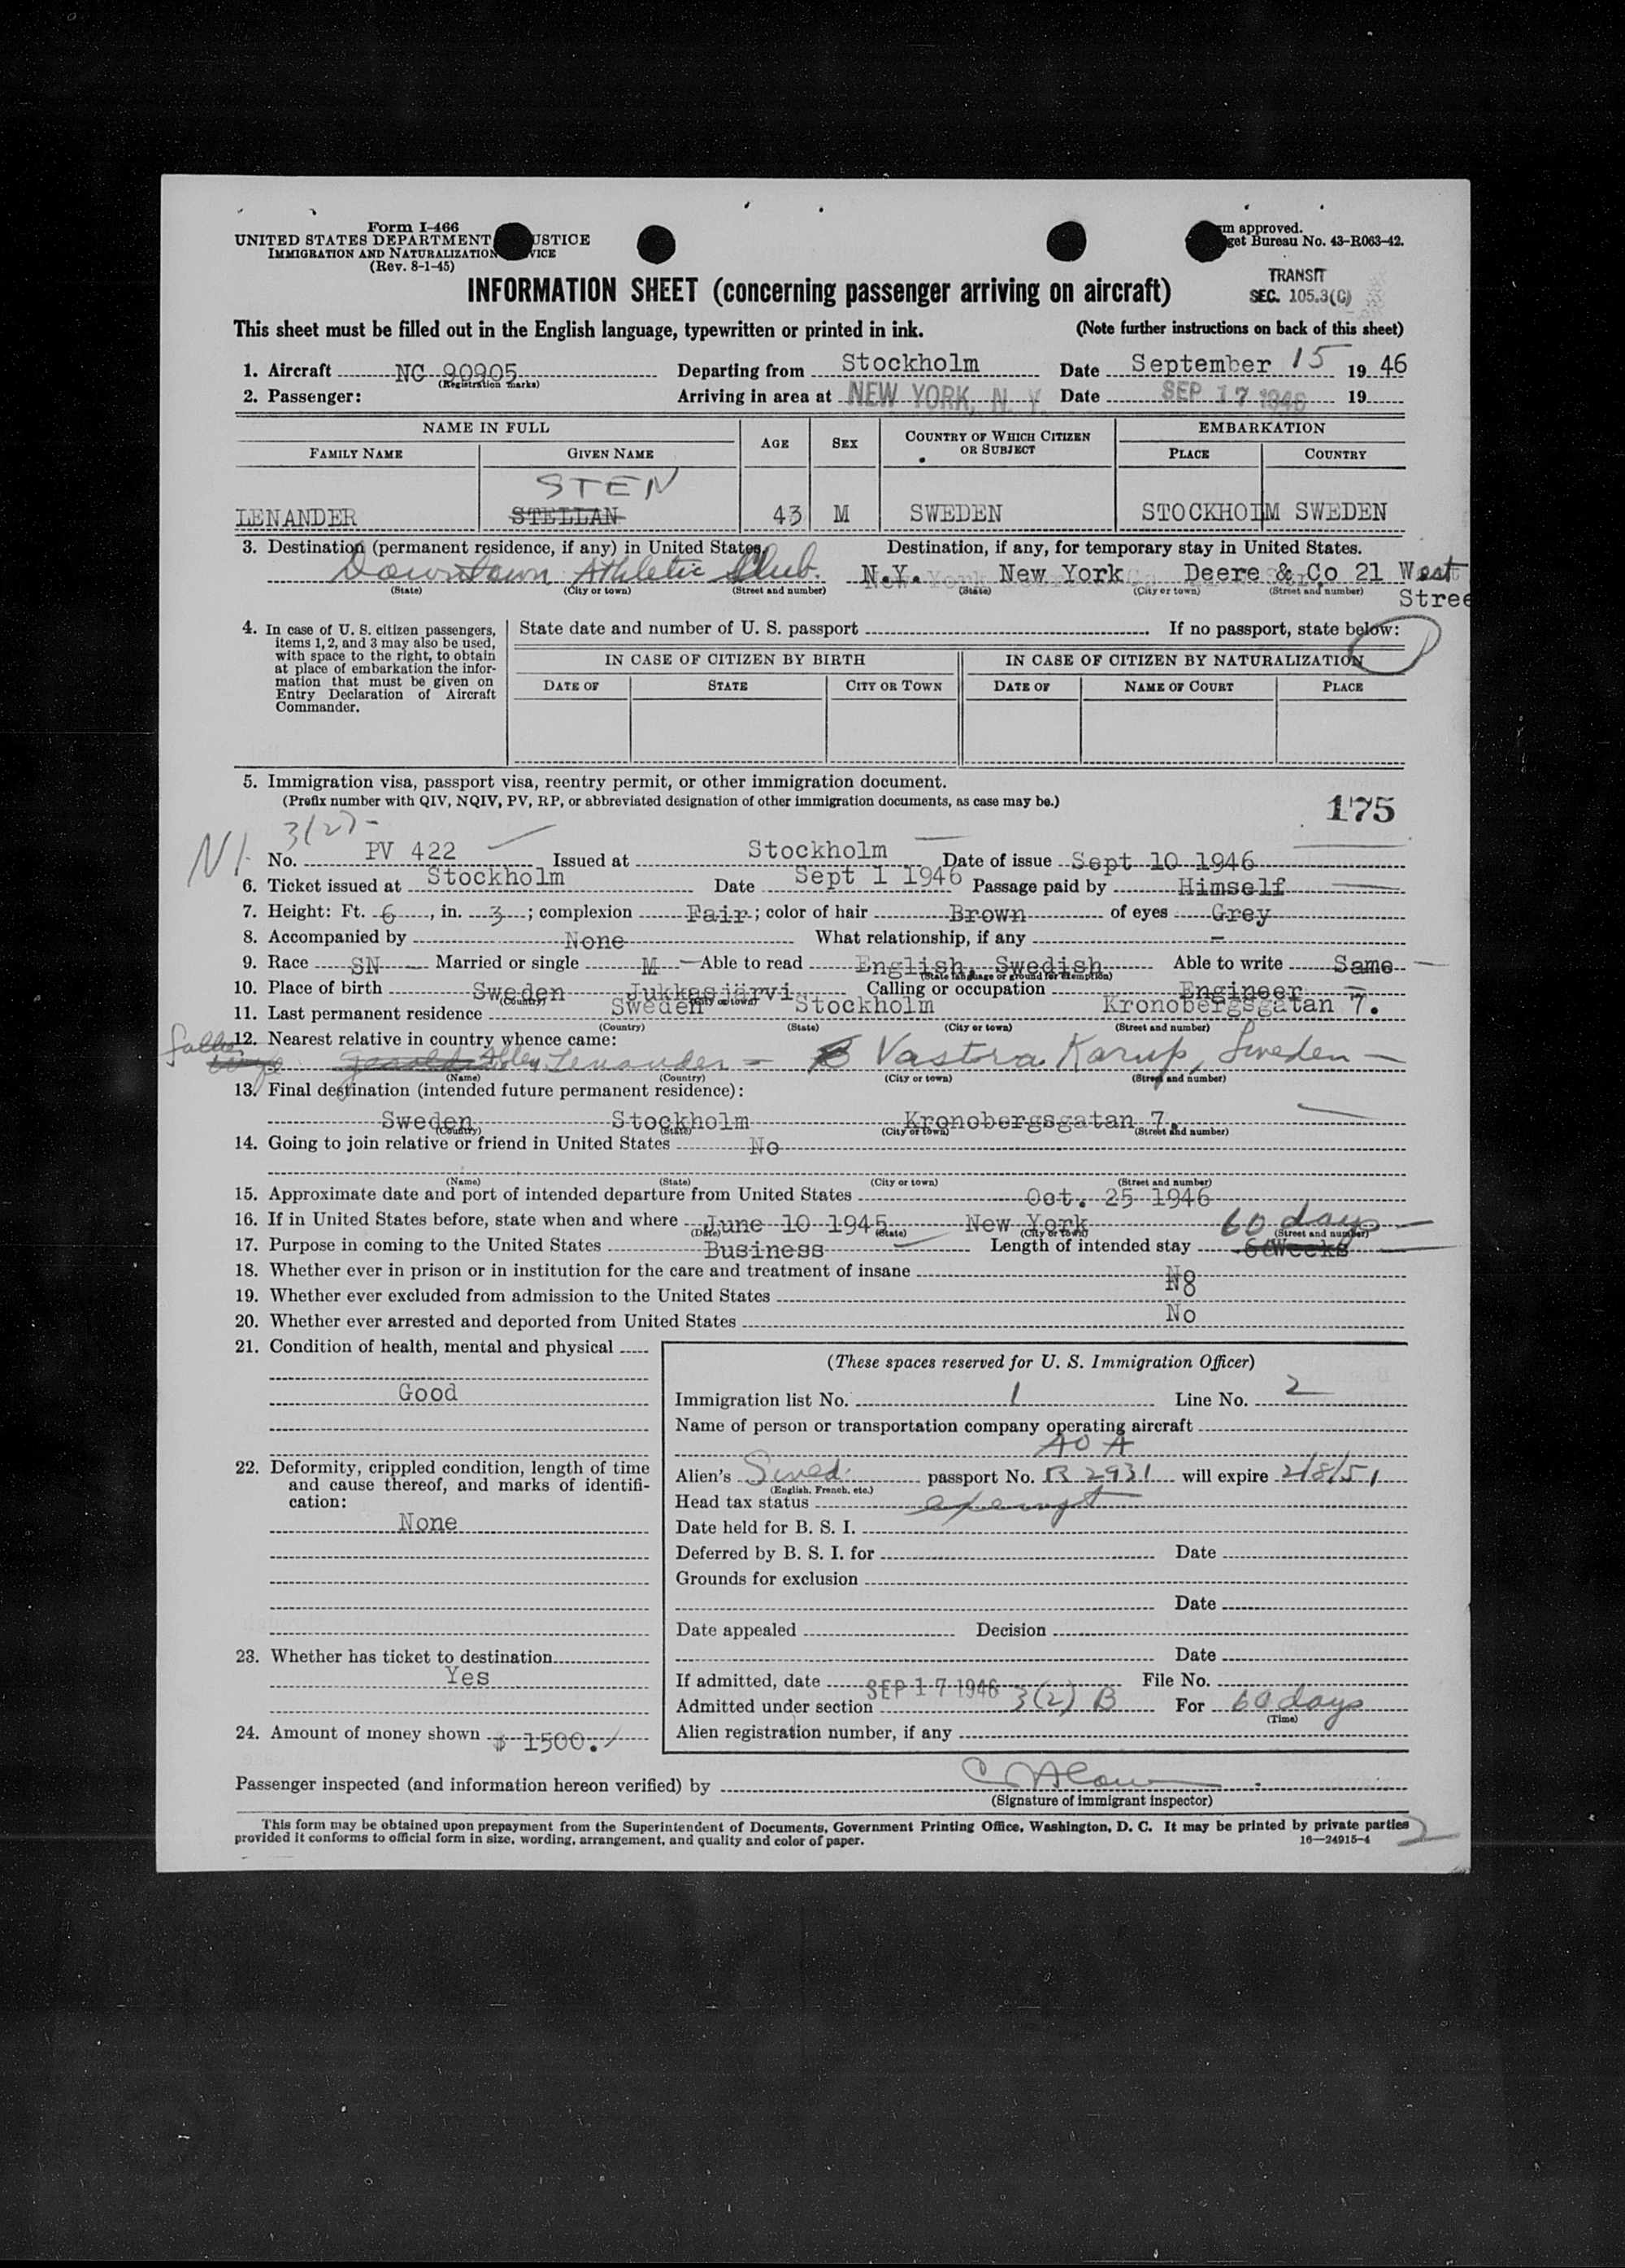 Form I-466
UNITED STATES DEPARTMENT USTICE
IMMIGRATION AND NATURALIZATION VICE
(Rev. 8-1-45)
m approved.
get Bureau No. 43-R063-42.
INFORMATION SHEET (concerning passenger arriving on aircraft)
TRANSIT
SEC. 105.3(C)
This sheet must be filled out in the English language, typewritten or printed in ink. (Note further instructions on back of this sheet)
1. Aircraft NC 90905 Departing from Stockholm Date September 15 1946
(Registration marks)
2. Passenger: Arriving in area at NEW YORK, N. Y. Date SEP 17 1946 19
NAME IN FULL AGE SEX COUNTRY OF WHICH CITIZEN OR SUBJECT EMBARKATION
FAMILY NAME GIVEN NAME PLACE COUNTRY
STEN
LENANDER STELLAN 43 M SWEDEN STOCKHOLM SWEDEN
3. Destination (permanent residence, if any) in United States. Destination, if any, for temporary stay in United States.
Downtown Athletic Club. N.Y. New York Deere & Co 21 West
Stree
(State) (City or town) (Street and number) (State) (City or town) (Street and number)
4. In case of U. S. citizen passengers, items 1, 2, and 3 may also be used, with space to the right, to obtain at place of embarkation the information that must be given on Entry Declaration of Aircraft Commander.
State date and number of U. S. passport If no passport, state below:
IN CASE OF CITIZEN BY BIRTH IN CASE OF CITIZEN BY NATURALIZATION
DATE OF STATE CITY OR TOWN DATE OF NAME OF COURT PLACE
5. Immigration visa, passport visa, reentry permit, or other immigration document.
(Prefix number with QIV, NQIV, PV, RP, or abbreviated designation of other immigration documents, as case may be.)
175
3(2)
No. PV 422 Issued at Stockholm Date of issue Sept 10 1946
6. Ticket issued at Stockholm Date Sept 1 1946 Passage paid by Himself
7. Height: Ft. 6, in. 3; complexion Fair; color of hair Brown of eyes Grey
8. Accompanied by None What relationship, if any -
9. Race SN Married or single M Able to read English, Swedish Able to write Same
(State language or ground for exemption)
10. Place of birth Sweden Jukkasjärvi Calling or occupation Engineer
(Country) (City or town)
11. Last permanent residence Sweden Stockholm Kronobergsgatan 7.
(Country) (State) (City or town) (Street and number)
12. Nearest relative in country whence came:
father Lenander - Vastra Karup, Sweden -
(Name) (Country) (City or town) (Street and number)
13. Final destination (intended future permanent residence):
Sweden Stockholm Kronobergsgatan 7.
(Country) (State) (City or town) (Street and number)
14. Going to join relative or friend in United States No
(Name) (State) (City or town) (Street and number)
15. Approximate date and port of intended departure from United States Oct. 25 1946
16. If in United States before, state when and where June 10 1945 New York
(Date) (State) (City or town) (Street and number)
60 days
17. Purpose in coming to the United States Business Length of intended stay 6 Weeks
18. Whether ever in prison or in institution for the care and treatment of insane No
19. Whether ever excluded from admission to the United States No
20. Whether ever arrested and deported from United States No
21. Condition of health, mental and physical
Good
22. Deformity, crippled condition, length of time and cause thereof, and marks of identification:
None
23. Whether has ticket to destination
Yes
24. Amount of money shown $ 1500.
(These spaces reserved for U. S. Immigration Officer)
Immigration list No. 1 Line No. 2
Name of person or transportation company operating aircraft
AOA
Alien's Swed. passport No. R 2931 will expire 2/8/51
(English, French, etc.)
Head tax status exempt
Date held for B. S. I.
Deferred by B. S. I. for Date
Grounds for exclusion
Date
Date appealed Decision
Date
If admitted, date SEP 17 1946 File No.
Admitted under section 3(2) B For 60 days
(Time)
Alien registration number, if any
Passenger inspected (and information hereon verified) by
(Signature of immigrant inspector)
This form may be obtained upon prepayment from the Superintendent of Documents, Government Printing Office, Washington, D. C. It may be printed by private parties
provided it conforms to official form in size, wording, arrangement, and quality and color of paper. 16—24915-4
2